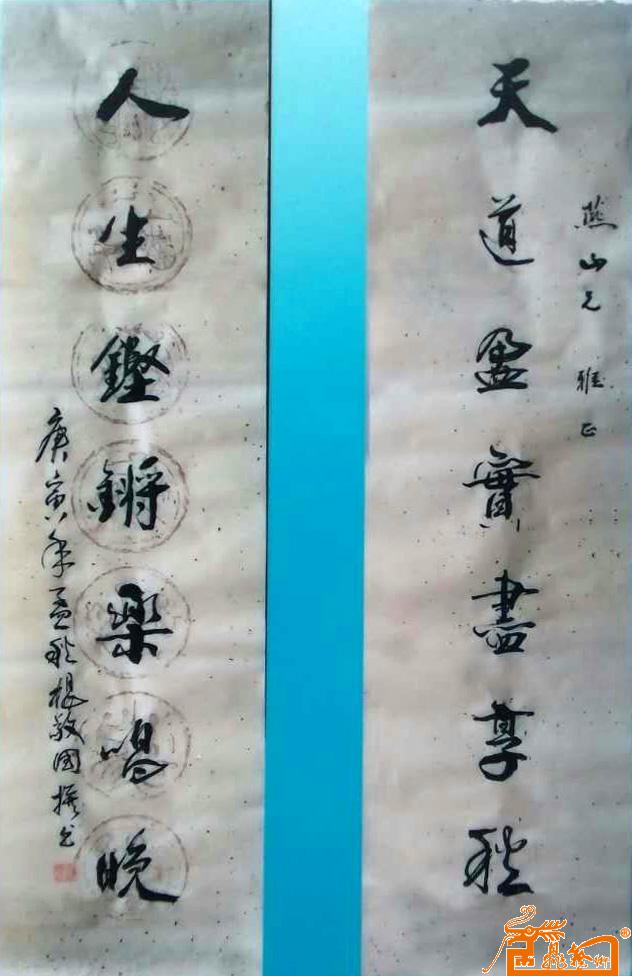 燕山兄 雅正
天道盈實盡享秋
人生鏗鏘樂唱晚
庚寅年孟秋楊敬國撰書